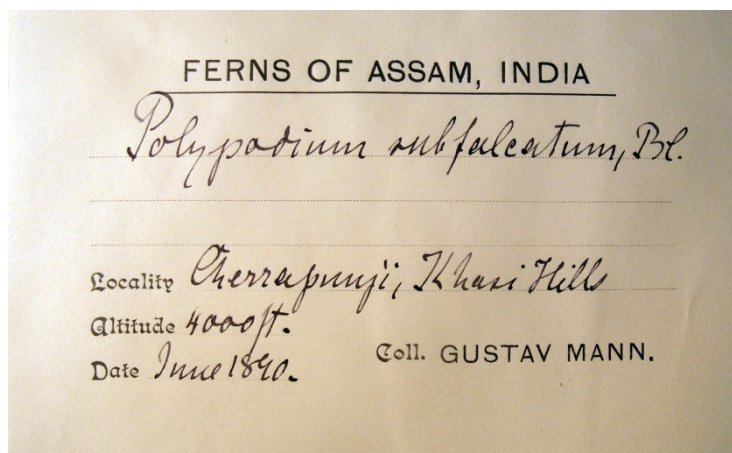 FERNS OF ASSAM, INDIA
Polypodium subfalcatum, Bl.
Locality Cherrapunji, Khasi Hills
Altitude 4000ft.
Date June 1890.
Coll. GUSTAV MANN.